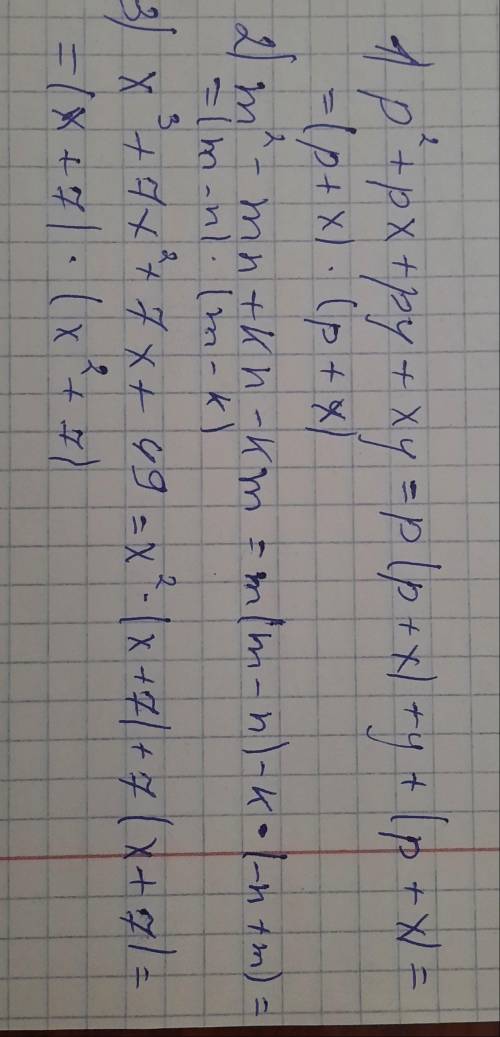 1) p² + px + py + xy = p(p + x) + y + (p + x) =
= (p + x) · (p + x)
2) m² - mn + kn - km = m(m - n) - k · (-n + m) =
= (m - n) · (m - k)
3) x³ + 7x² + 7x + 49 = x² · (x + 7) + 7(x + 7) =
= (x + 7) · (x² + 7)